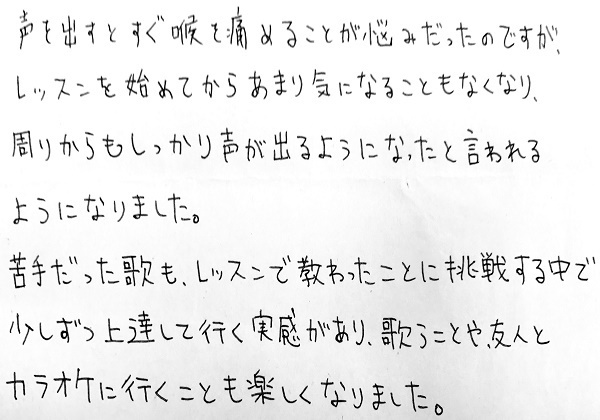 声を出すとすぐ喉を痛めることが悩みだったのですが、
レッスンを始めてからあまり気になることもなくなり、
周りからもしっかり声が出るようになったと言われる
ようになりました。
苦手だった歌も、レッスンで教わったことに挑戦する中で
少しずつ上達して行く実感があり、歌うことや、友人と
カラオケに行くことも楽しくなりました。